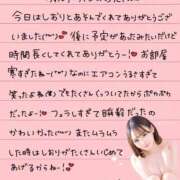 今日はしおりとあそんでくれてありがとうござ
いました(♡ᴗ♡)💕 後に予定があったみたいだけど
時間長くしてくれてありがとうー💕お部屋
寒すぎたねー(^^) なのにエアコンうるさすぎて
笑ったよね(笑)でもたくさんくっついてたからぽかぽか
だったよー💕 フェラしすぎて
かわいかった(^^) またムラムラ
した時はしおりがたくさんいじめて
あげるからねー💕